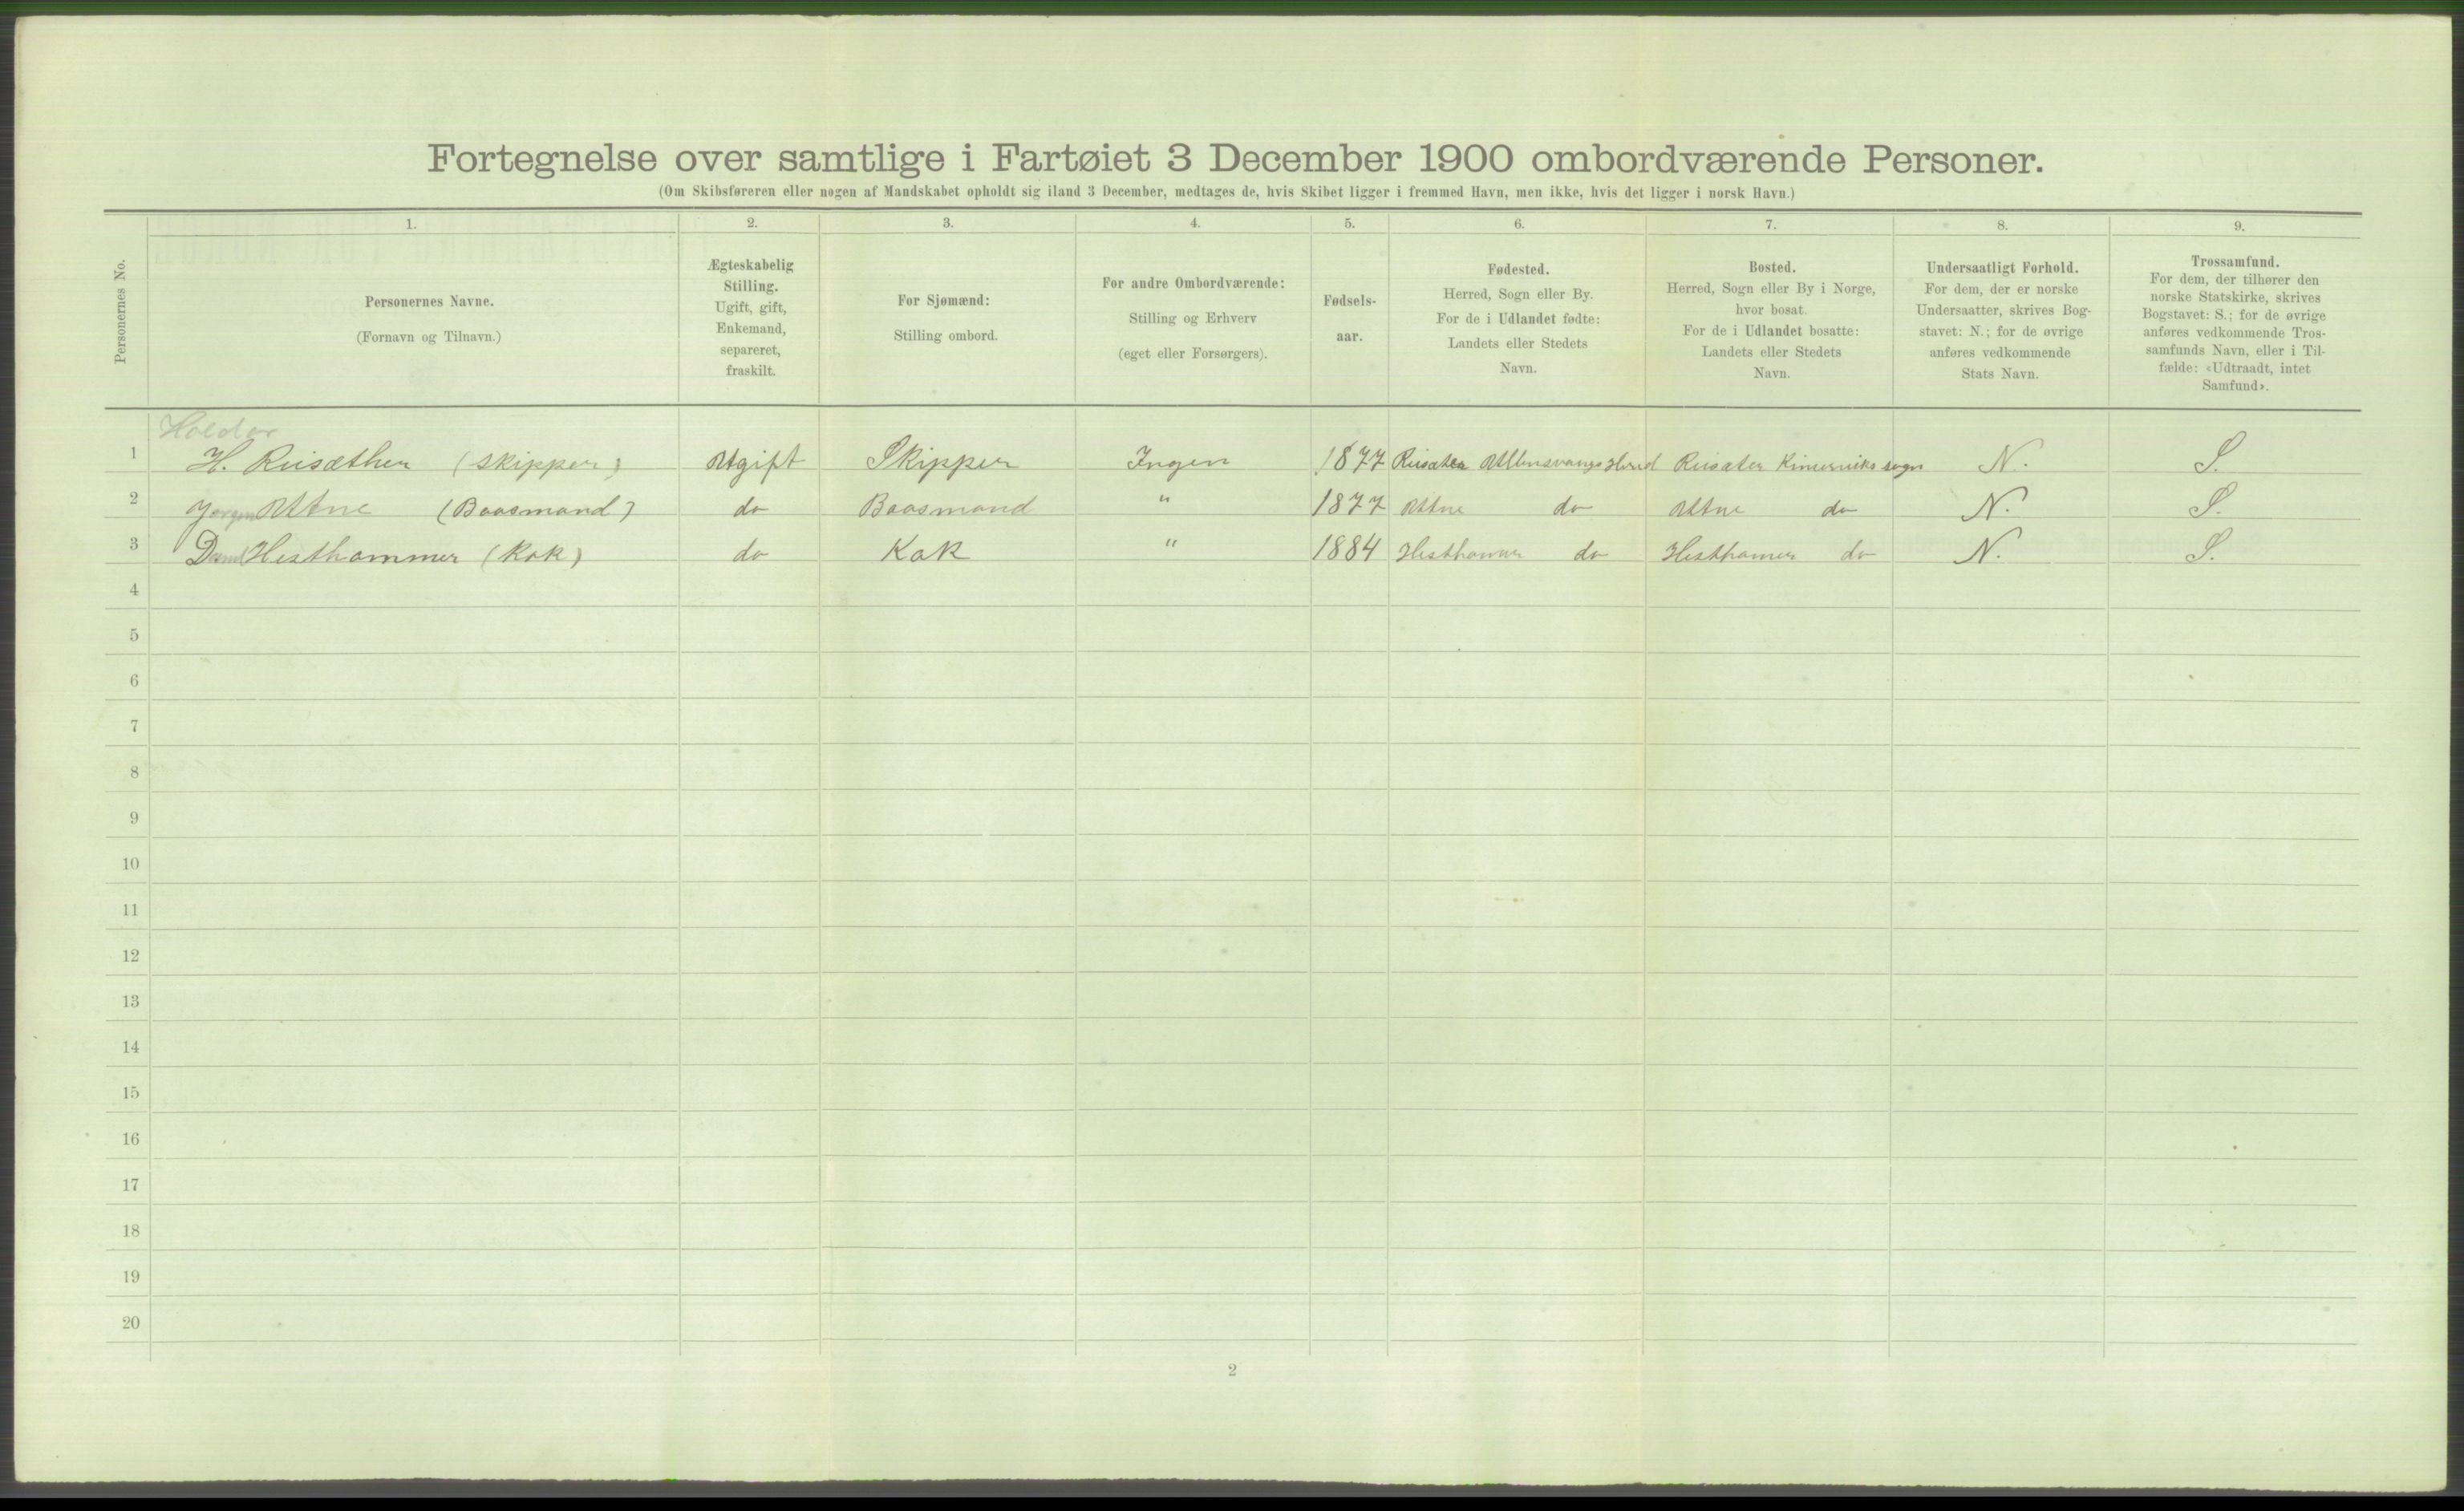 Fortegnelse over samtlige i Fartøiet 3 December 1900 ombordværende Personer.
(Om Skibsføreren eller nogen af Mandskabet opholdt sig iland 3 December, medtages de, hvis Skibet ligger i fremmed Havn, men ikke, hvis det ligger i norsk Havn.)
Personernes No.
1. 2. 3. 4. 5. 6. 7. 8. 9.
Personernes Navne.
(Fornavn og Tilnavn.)
Ægteskabelig
Stilling.
Ugift, gift,
Enkemand,
separeret,
fraskilt.
For Sjømænd:
Stilling ombord.
For andre Ombordværende:
Stilling og Erhverv
(eget eller Forsørgers).
Fødsels-
aar.
Fødested.
Herred, Sogn eller By.
For de i Udlandet fødte:
Landets eller Stedets
Navn.
Bosted.
Herred, Sogn eller By i Norge,
hvor bosat.
For de i Udlandet bosatte:
Landets eller Stedets
Navn.
Undersaatligt Forhold.
For dem, der er norske
Undersaatter, skrives Bog-
stavet: N.; for de øvrige
anføres vedkommende
Stats Navn.
Trossamfund.
For dem, der tilhører den
norske Statskirke, skrives
Bogstavet: S.; for de øvrige
anføres vedkommende Tros-
samfunds Navn, eller i Til-
fælde: «Udtraadt, intet
Samfund».
Haldor
1 H. Riisæther (Skipper) Utgift Skipper Ingen 1877 Riisæter Ullensvangs Herred Riisæter Kinserviks sogn N. S.
2 Jørgen Utne (Baasmand) do Baasmand " 1877 Utne do Utne do N. S.
3 Hesthammer (Kok) do Kok " 1884 Hesthamer do Hesthamer do N. S.
4
5
6
7
8
9
10
11
12
13
14
15
16
17
18
19
20
2